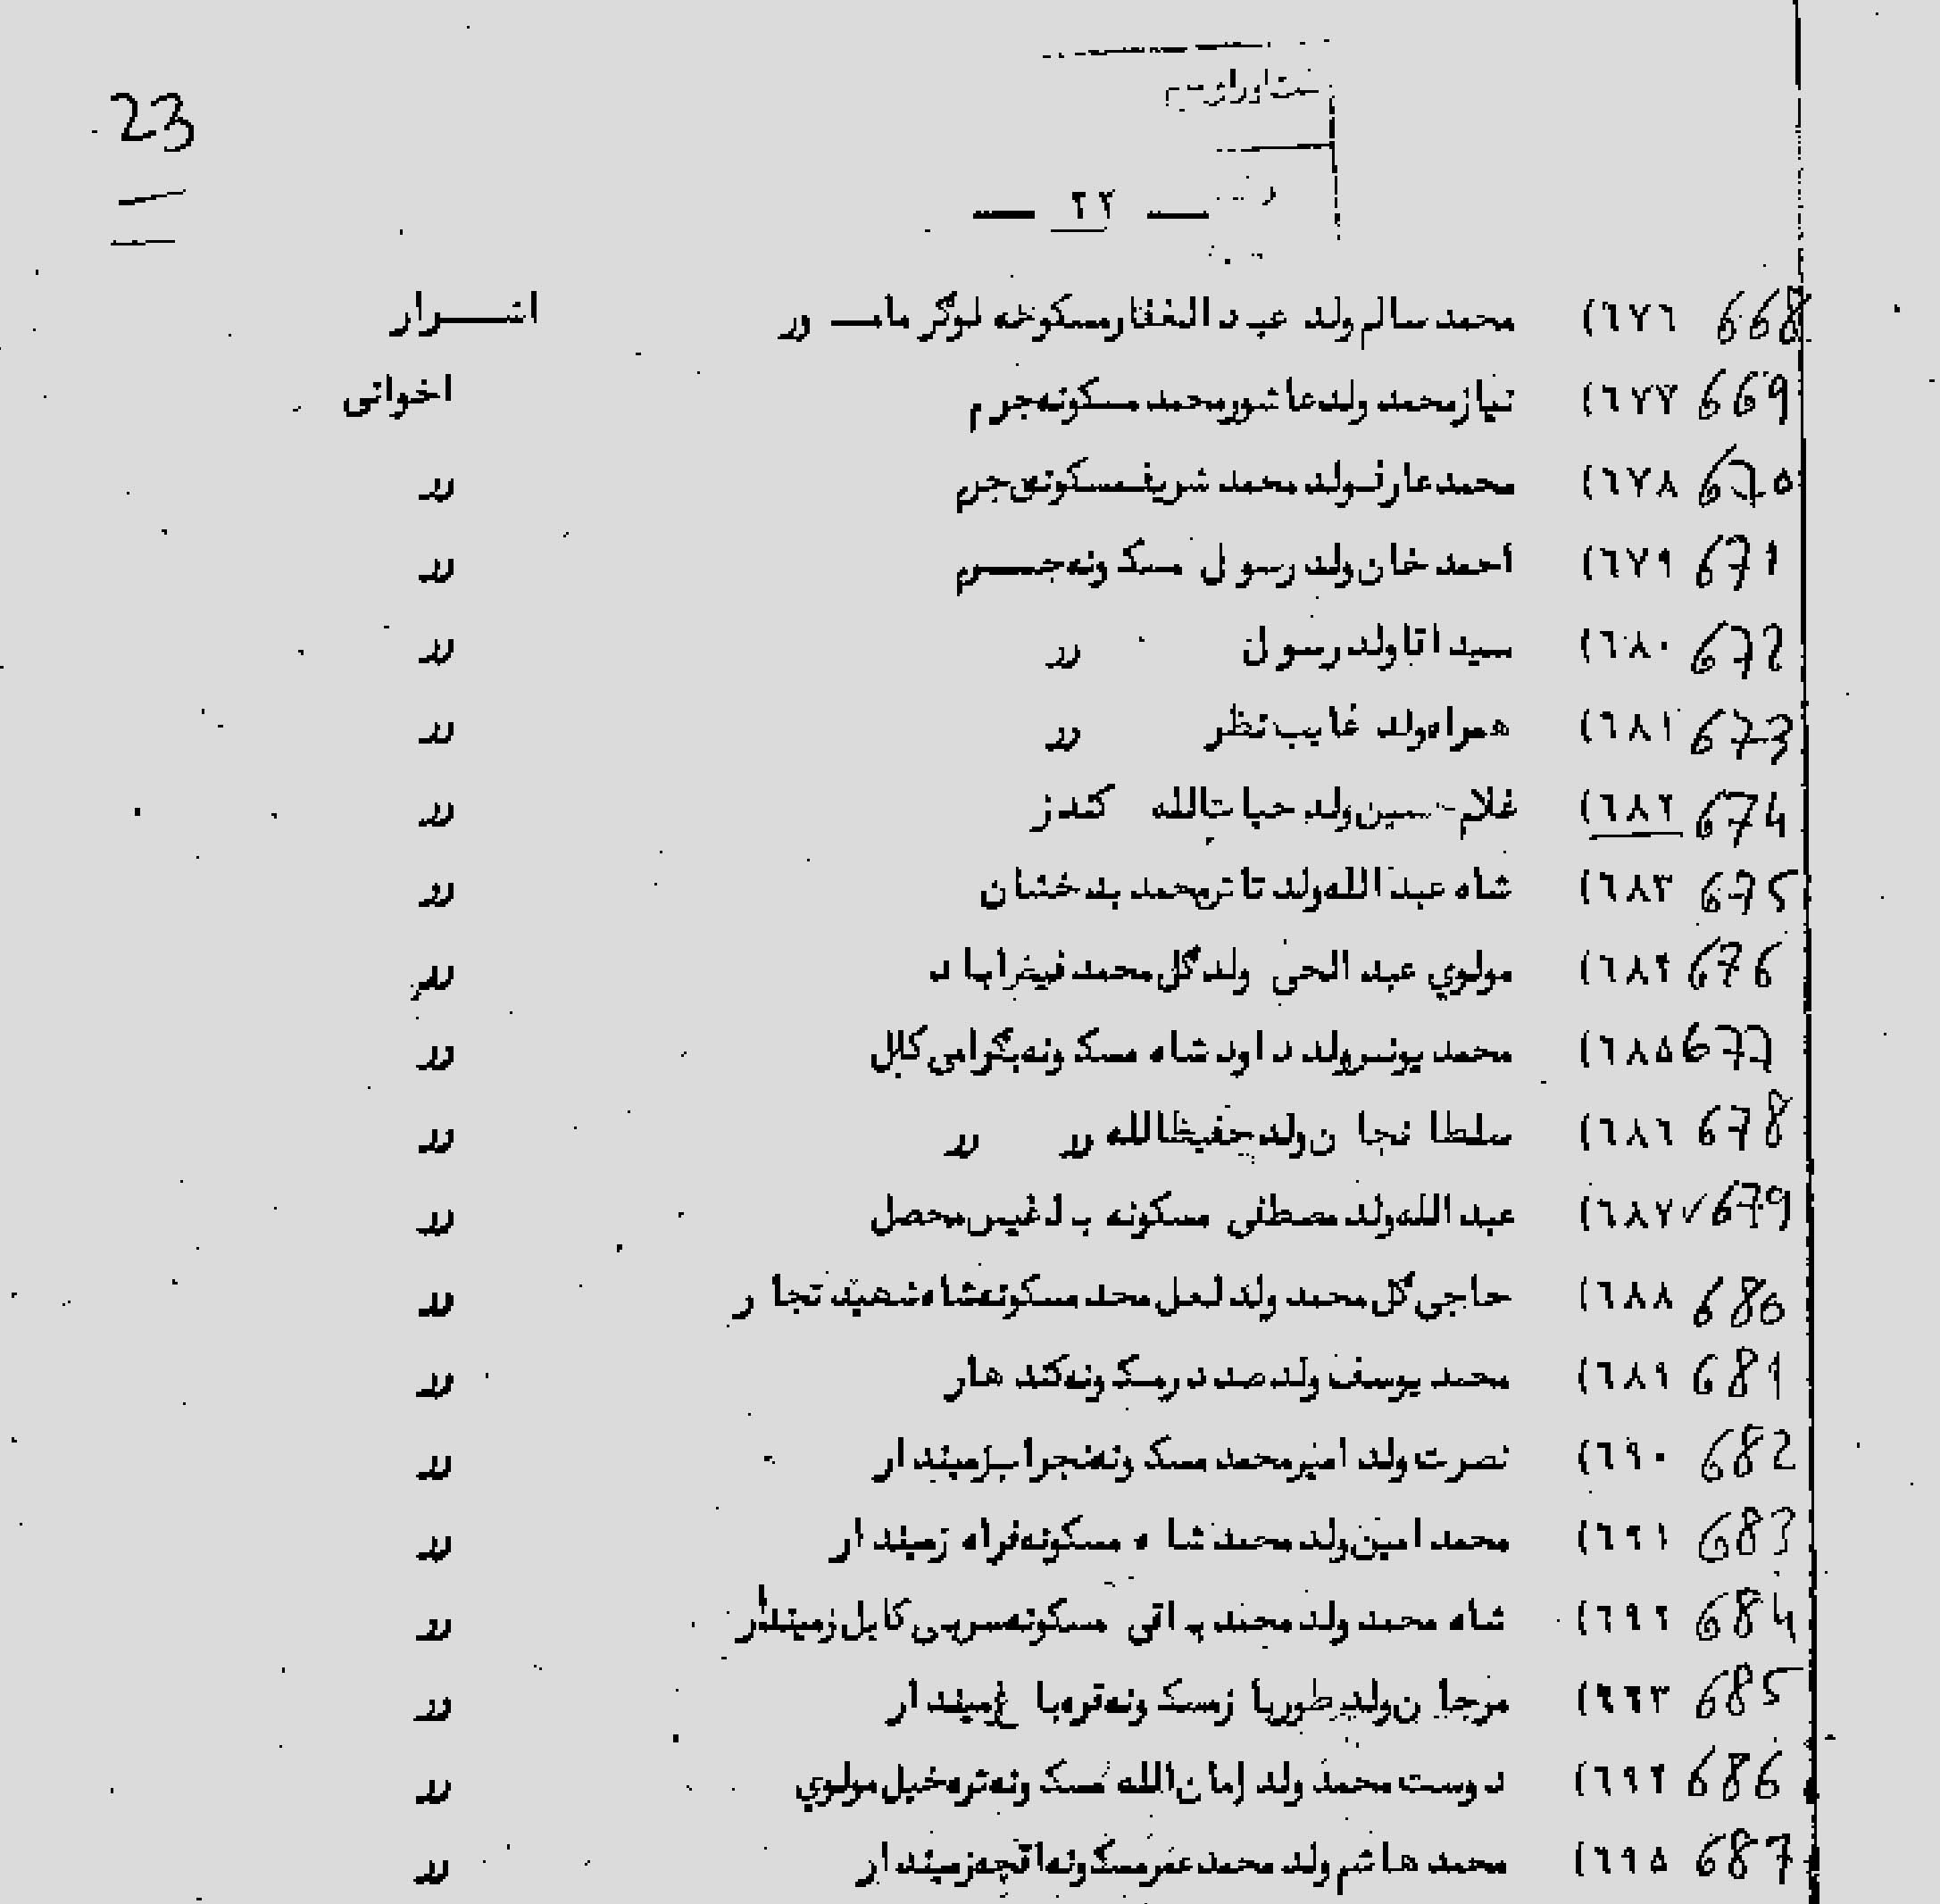 23
— ٢٢ —
668 ٦٧٦) محمد سالم ولد عبد الغفار مسکونه لوگر مامور اشرار
669 ٦٧٧) نیاز محمد ولد عاشور محمد مسکونه جرم اخوانی
670 ٦٧٨) محمد عارف ولد محمد شریف مسکونه جرم رر
671 ٦٧٩) احمد خان ولد رسول مسکونه جرم رر
672 ٦٨٠) سید اتا ولد رسول رر رر
673 ٦٨١) همراه ولد غایب نظر رر رر
674 ٦٨٢) غلام حسین ولد حیات الله کندز رر
675 ٦٨٣) شاه عبد الله ولد محمد بدخشان رر
676 ٦٨۴) مولوي عبد الحی ولد گل محمد فیض اباد رر
677 ٦٨۵) محمد یونس ولد داود شاه مسکونه بگرامی کابل رر
678 ٦٨٦) سلطا نجا ن ولد حفیظ الله رر رر رر
679 ٦٨٧) عبد الله ولد مصطفی مسکونه بادغیس محصل رر
680 ٦٨٨) حاجی گل محمد ولد لعل محد مسکونه شاه شهید تجار رر
681 ٦٨٩) محمد یوسف ولد صدر مسکونه کندهار رر
682 ٦٩٠) نصرت ولد امیر محمد مسکونه نجراب زمیندار رر
683 ٦٩١) محمد امین ولد محمد شاه مسکونه فراه زمیندار رر
684 ٦٩٢) شاه محمد ولد محمد باقی مسکونه کابل زمیندار رر
685 ٦٦٣) مرجان ولد طوربا ز مسکونه قره با غ زمیندار رر
686 ٦٩۴) دوست محمد ولد امان الله مسکونه تره خیل مولوي رر
687 ٦٩۵) محمد هاشم ولد محمد عمر مسکونه اقچه زمیندار رر